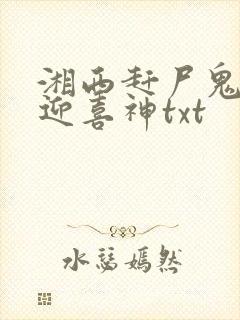 湘西赶尸鬼
迎喜神txt
水慈嫣然